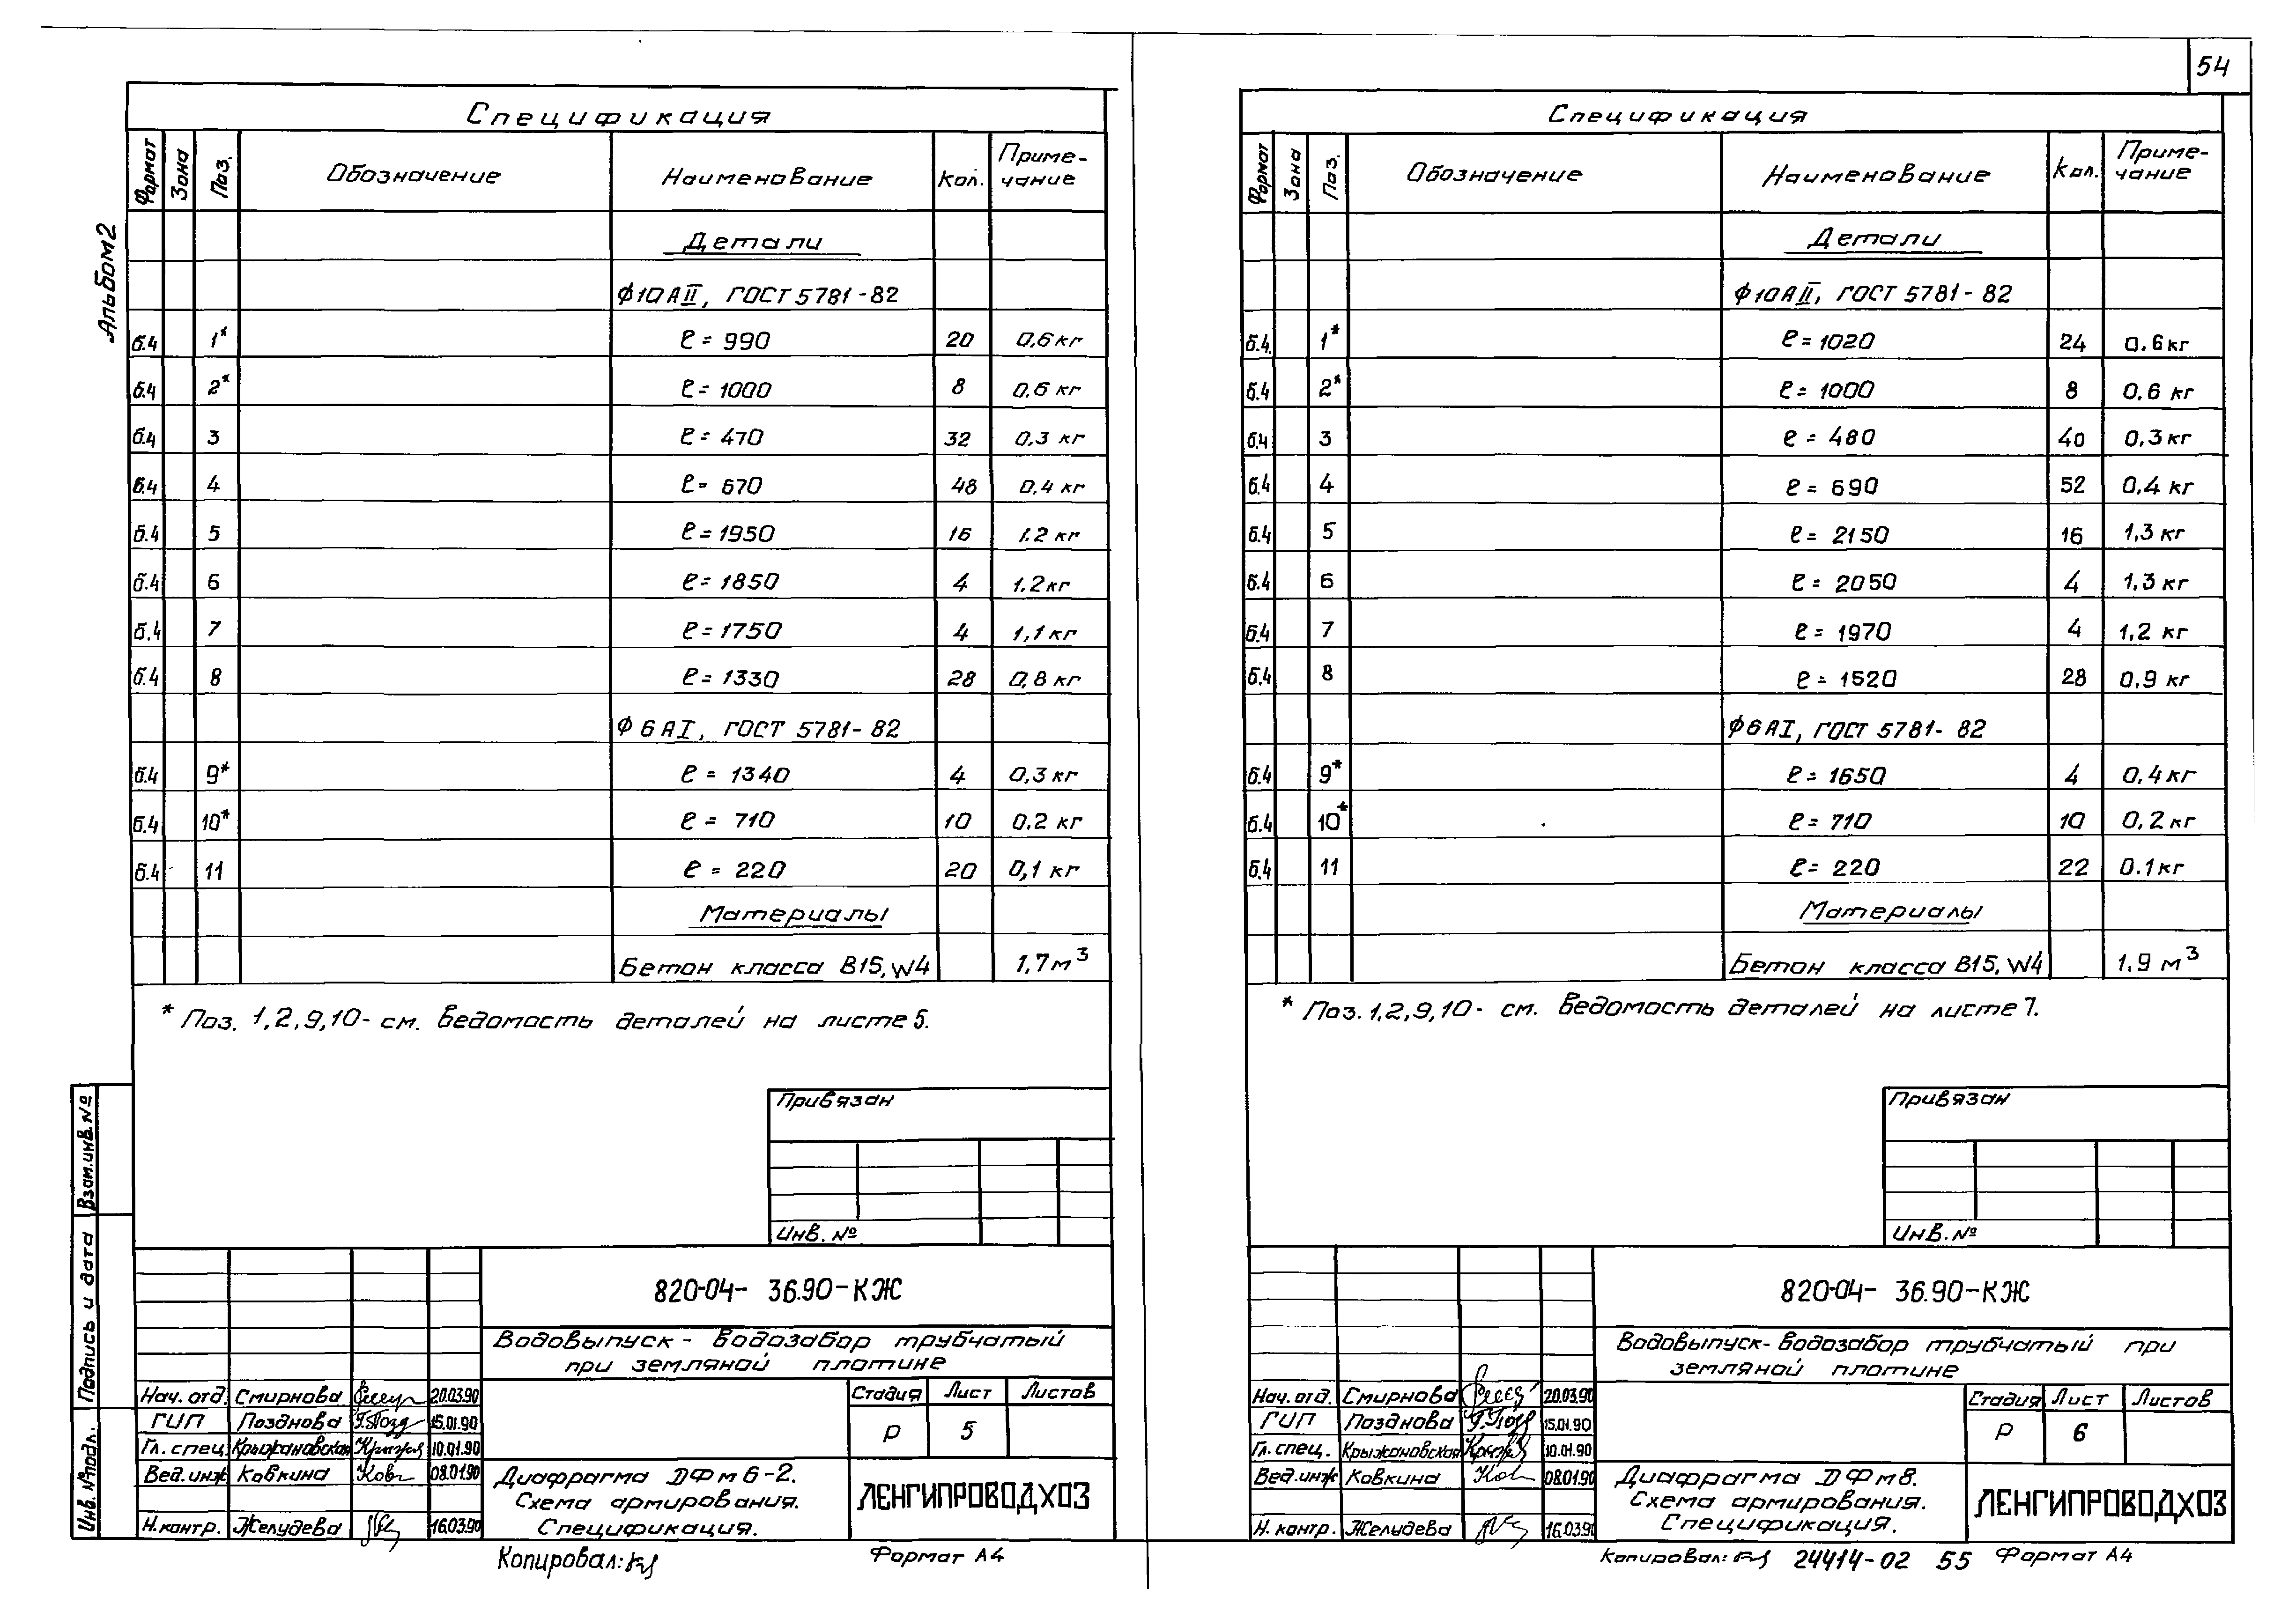 54
Альбом 2
Спецификация
Формат Зона Поз. Обозначение Наименование Кол. Приме-
чание
Детали
ф10АII, ГОСТ 5781-82
б.4 1* ℓ=990 20 0,6 кг
б.4 2* ℓ=1000 8 0,6 кг
б.4 3 ℓ=470 32 0,3 кг
б.4 4 ℓ=670 48 0,4 кг
б.4 5 ℓ=1950 16 1.2 кг
б.4 6 ℓ=1850 4 1.2 кг
б.4 7 ℓ=1750 4 1,1 кг
б.4 8 ℓ=1330 28 0,8 кг
ф6АI, ГОСТ 5781-82
б.4 9* ℓ=1340 4 0,3 кг
б.4 10* ℓ=710 10 0,2 кг
б.4 11 ℓ=220 20 0,1 кг
Материалы
Бетон класса В15, W4 1,7 м³
* Поз. 1,2,9,10- см. Ведомость деталей на листе 5.
Привязан
Инв. №
Взам.инв.№
Подпись и дата
Инв. № подл.
820-04- 36.90-КЖ
Водовыпуск - водозабор трубчатый
при земляной плотине
Нач. отд. Смирнова 20.03.90
ГИП Позднова 15.01.90
Гл. спец. Крыжановская 10.01.90
Вед.инж Ковкина 08.01.90
Н.контр. Желудева 16.03.90
Стадия Лист Листов
Р 5
Диафрагма ДФм 6-2.
Схема армирования.
Спецификация.
ЛЕНГИПРОВОДХОЗ
Копировал: Формат А4
Спецификация
Формат Зона Поз. Обозначение Наименование Кол. Приме-
чание
Детали
ф10АII, ГОСТ 5781-82
б.4. 1* ℓ=1020 24 0.6 кг
б.4 2* ℓ=1000 8 0.6 кг
б.4 3 ℓ=480 40 0,3 кг
б.4 4 ℓ=690 52 0,4 кг
б.4 5 ℓ=2150 16 1,3 кг
б.4 6 ℓ=2050 4 1,3 кг
б.4 7 ℓ=1970 4 1,2 кг
б.4 8 ℓ=1520 28 0,9 кг
ф6АI, ГОСТ 5781-82
б.4 9* ℓ=1650 4 0,4 кг
б.4 10* ℓ=710 10 0,2 кг
б.4 11 ℓ=220 22 0.1 кг
Материалы
Бетон класса В15, W4 1.9 м³
* Поз. 1,2,9,10- см. Ведомость деталей на листе 7.
Привязан
Инв. №
820-04- 36.90-КЖ
Водовыпуск- водозабор трубчатый при
земляной плотине
Нач. отд. Смирнова 20.03.90
ГИП Позднова 15.01.90
Гл. спец. Крыжановская 10.01.90
Вед.инж Ковкина 08.01.90
Н. контр. Желудева 16.03.90
Стадия Лист Листов
Р 6
Диафрагма ДФм8.
Схема армирования.
Спецификация.
ЛЕНГИПРОВОДХОЗ
Копировал: 24414-02 55 Формат А4